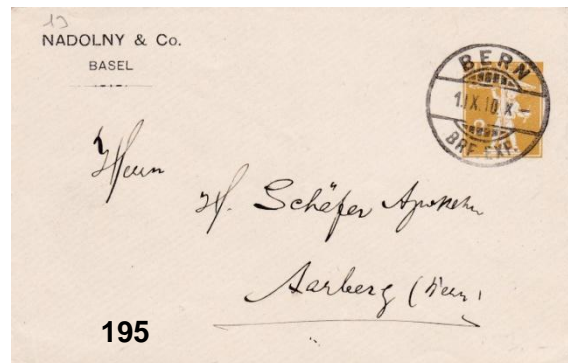 13
NADOLNY & Co.
BASEL
BERN
1.IX.10.X-
BRF. EXP.
Herrn
H. Schäfer Apotheker
Aarberg (Bern)
195